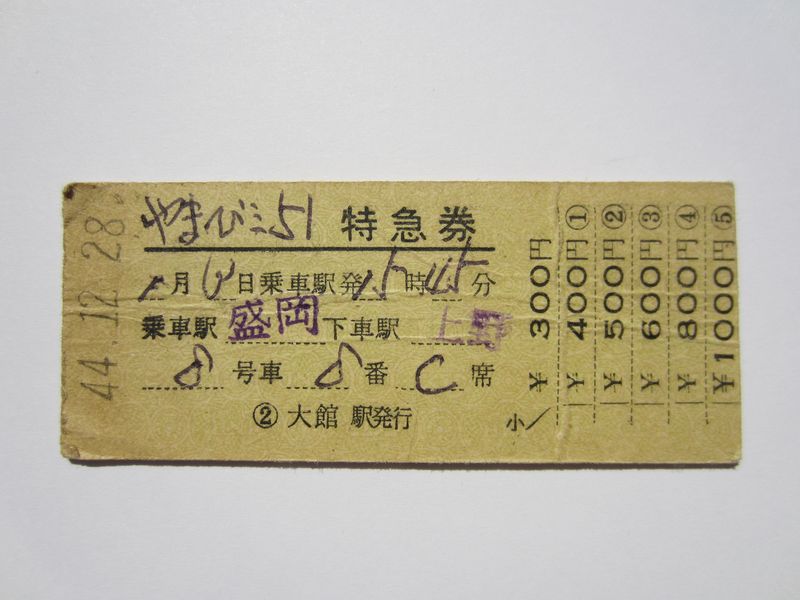 44.12.28
やまびこ51 特急券
月 日乗車駅発15時45分
乗車駅 盛岡 下車駅 上野
8号車 8番 C席
② 大館 駅発行
小
¥300円
¥400円①
¥500円②
¥600円③
¥800円④
¥1000円⑤